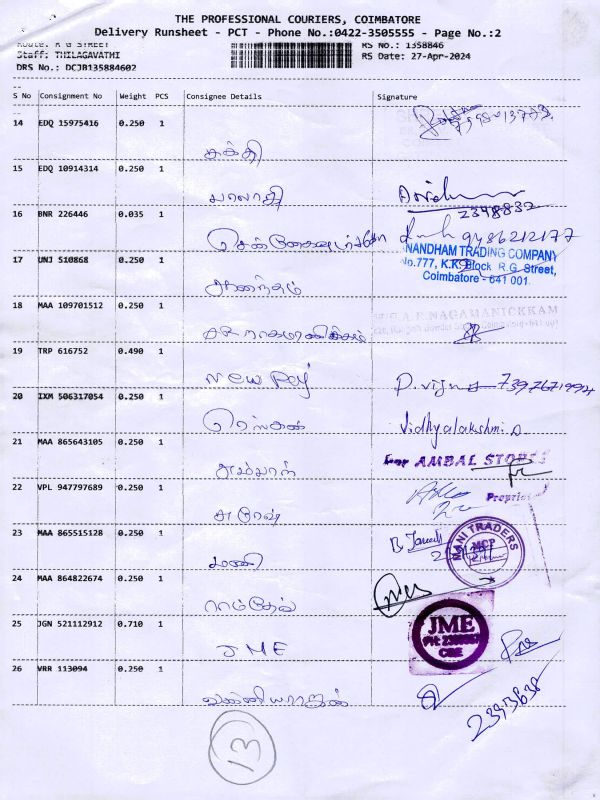 THE PROFESSIONAL COURIERS, COIMBATORE
Delivery Runsheet - PCT - Phone No.:0422-3505555 - Page No.:2
Route: R G STREET RS No.: 1358846
Staff: THILAGAVATHI RS Date: 27-Apr-2024
DRS No.: DCJB135884602
S No Consignment No Weight PCS Consignee Details Signature
14 EDQ 15975416 0.250 1
சக்தி
15 EDQ 10914314 0.250 1
பாலாஜி
2398832
16 BNR 226446 0.035 1
9486212177
17 UNJ 510868 0.250 1
ANANDHAM TRADING COMPANY
No.777, K.K. Block R.G. Street,
Coimbatore - 641 001.
ஆனந்தம்
18 MAA 109701512 0.250 1
A.R.NAGAMANICKKAM
AR நாகமாணிக்கம்
19 TRP 616752 0.490 1
New Rej
20 IXM 506317054 0.250 1
Vidhyalakshmi.
21 MAA 865643105 0.250 1
For AMBAL STORES
அம்பாள்
22 VPL 947797689 0.250 1
Proprietor
சுரேஷ்
23 MAA 865515128 0.250 1
MANI TRADERS
MCP
மணி
24 MAA 864822674 0.250 1
ராம்தேவ்
25 JGN 521112912 0.710 1
JME
CBE
JME
26 VRR 113094 0.250 1
2393638
13